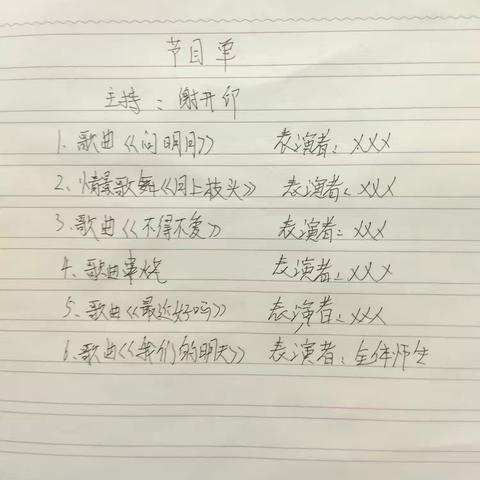 节目单
主持：谢开印
1、歌曲《问明月》 表演者：XXX
2、情景歌舞《月上枝头》 表演者：XXX
3、歌曲《不得不爱》 表演者：XXX
4、歌曲串烧 表演者：XXX
5、歌曲《最近好吗》 表演者：XXX
6、歌曲《我们的明天》 表演者：全体师生